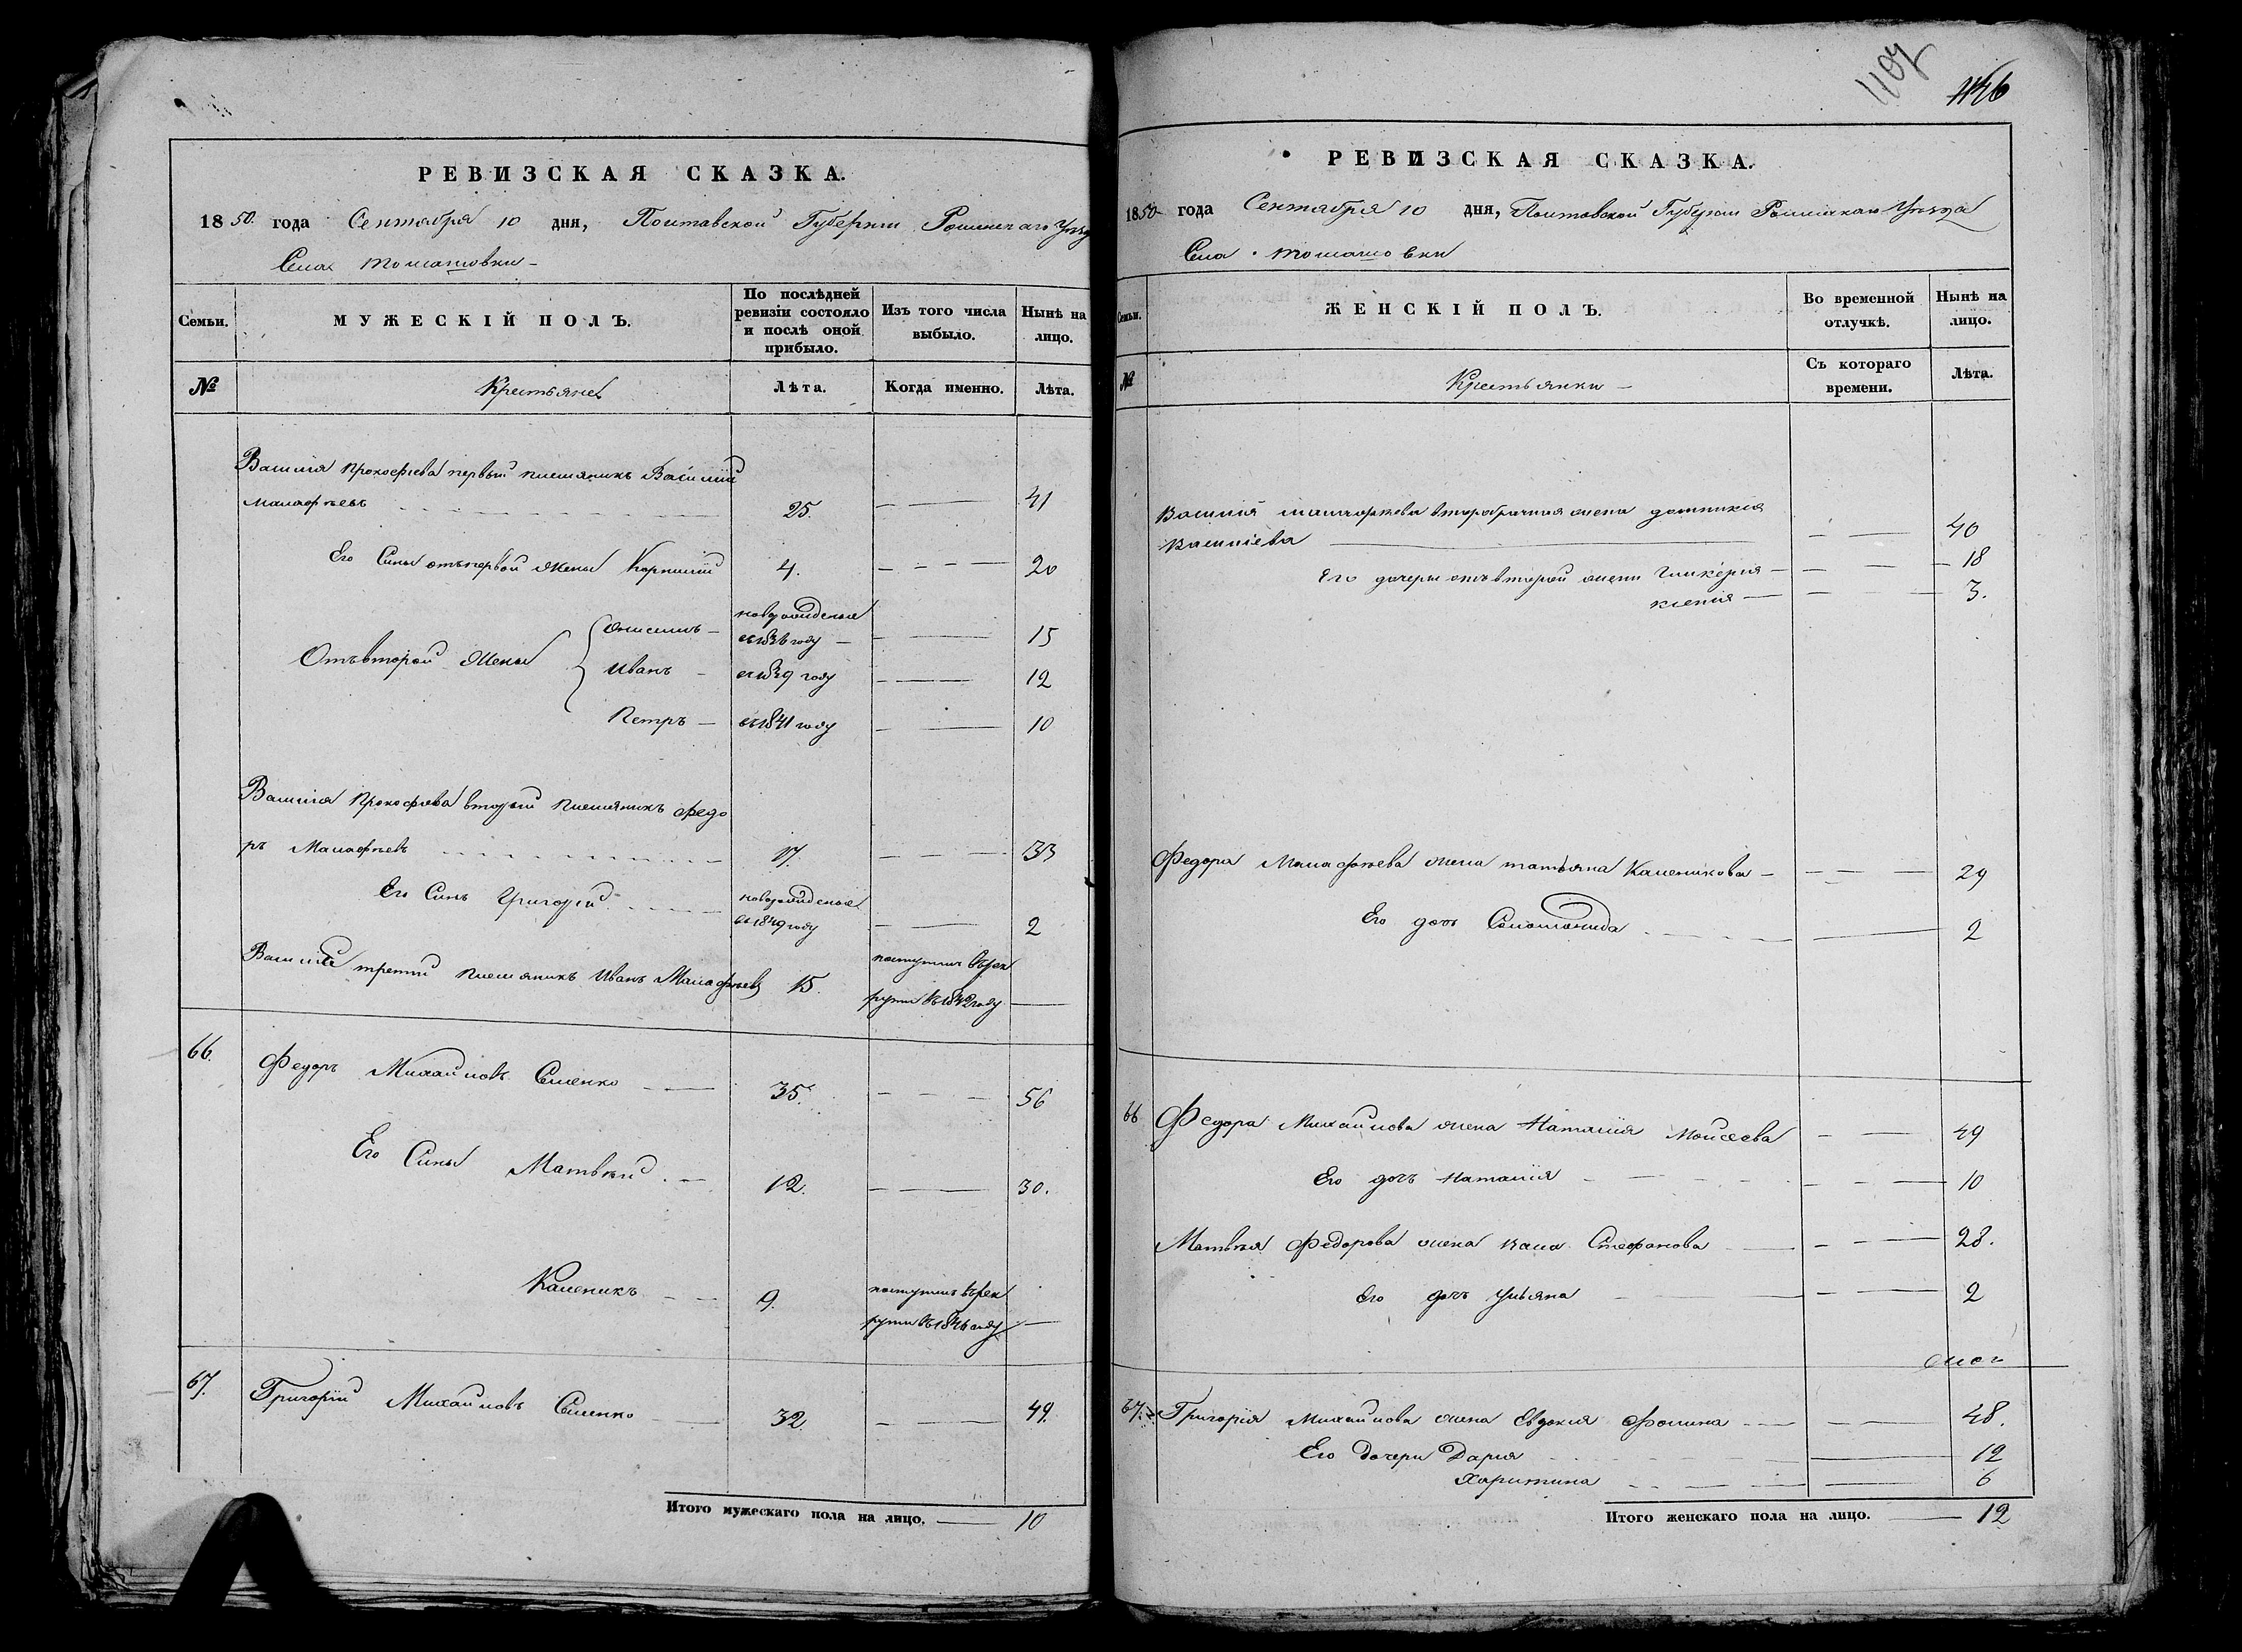 РЕВИЗСКАЯ СКАЗКА.
1850. года Сентября 10 дня, Полтавской Губернии Роменскаго Уезд
Села Томашовки
Семьи.
МУЖЕСКІЙ ПОЛЪ.
По послѣдней ревизіи состояло и послѣ оной прибыло.
Изъ того числа выбыло.
Нынѣ на лицо.
№
Крестьяне
Лѣта.
Когда именно.
Лѣта.
Василія Прокофіева первый племяникъ Василій
Малафѣевъ 25. 41
Его Сины отъ первой Жены Корнилій 4. 20
новорожденые
Онисимъ въ 1836 году 15
Отъ второй Жены
Иванъ въ 1839 году 12
Петръ въ 1841 году 10
Василія Прокофіева второй племяникъ Федо
ръ Малафѣевъ 17. 33
Его Синъ Григорій новорожденые
въ 1849 году 2
Василія третій племяникъ Иванъ Малафѣевъ 15. поступилъ въ рек
руты въ 1842 году
66. Федоръ Михайловъ Семенко 35. 56
Его Сины Матвѣй 12. 30.
Каленикъ 9. поступилъ въ рек
руты въ 1846 году
67. Григорій Михайловъ Семенко 32 49.
Итого мужескаго пола на лицо. 10
407
446
РЕВИЗСКАЯ СКАЗКА.
1850 года Сентября 10 дня, Полтавской Губернии Роменскаго Уезда
Села Томашовки
Семьи.
ЖЕНСКІЙ ПОЛЪ.
Во временной отлучкѣ.
Нынѣ на лицо.
№
Крестьянки
Съ котораго времени.
Лѣта.
Василія Малафѣева второбрачная жена Домникія
Василіева 40
Его дочеры отъ второй жены Гликерія 18
Ксенія 3.
Федора Малафѣева жена Татьяна Каленикова 29
Его дочь Соломонида 2
66 Федора Михайлова жена Наталія Моисеева 49
Его дочь Наталія 10
Матвѣя Федорова жена Стефанова 28.
Его дочь Ульяна 2
67. Григорія Михайлова жена Евдокія Фомина 48.
Его Дочери Дарія 12
Харитина 6
Итого женскаго пола на лицо. 12